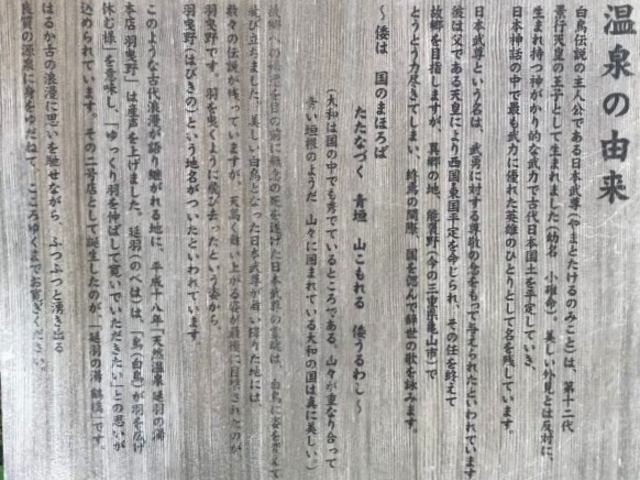 温泉の由来
白鳥伝説の主人公である日本武尊(やまとたけるのみこと)は、第十二代
景行天皇の王子として生まれました(幼名 小碓命)。美しい外見とは反対に、
生まれ持つ神がかり的な武力で古代日本国土を平定していき、
日本神話の中で最も武力に優れた英雄のひとりとして名を残しています。
日本武尊という名は、武勇に対する尊敬の念をもって与えられたといわれています
彼は父である天皇により西国・東国平定を命じられ、その任を終えて
故郷を目指しますが、異郷の地、能賀野(今の三重県亀山市)で
とうとう力尽きてしまい、終焉の間際、国を偲んで辞世の歌を詠みます。
〜 倭は 国のまほろば
たたなづく 青垣 山こもれる 倭うるわし 〜
(大和は国の中でも秀でているところである。山々が重なり合って
青い垣根のようだ 山々に囲まれている大和の国は真に美しい)
故郷への帰還を目の前に無念の死を遂げた日本武尊の霊魂は、白鳥に姿を変えて
飛び立ちました。美しい白鳥となった日本武尊が舞い降りた地には
数々の伝説が残っていますが、天高く舞い上がる姿が最後に目撃されたのが
羽曳野です。羽を曳くように飛び去ったという姿から、
羽曳野(はびきの)という地名がついたといわれています。
このような古代浪漫が語り継がれる地に、平成十八年「天然温泉 延羽の湯
本店 羽曳野」は産声を上げました。延羽(のべは)は、「鳥(白鳥)が羽を広げ
休む様」を意味し、「ゆっくり羽を伸ばして寛いでいただきたい」との思いが
込められています。その二号店として誕生したのが、「延羽の湯 鶴橋」です。
はるか古の浪漫に思いを馳せながら、ふつふつと湧き出る
良質の源泉に身をゆだねて、こころゆくまでお寛ぎください。